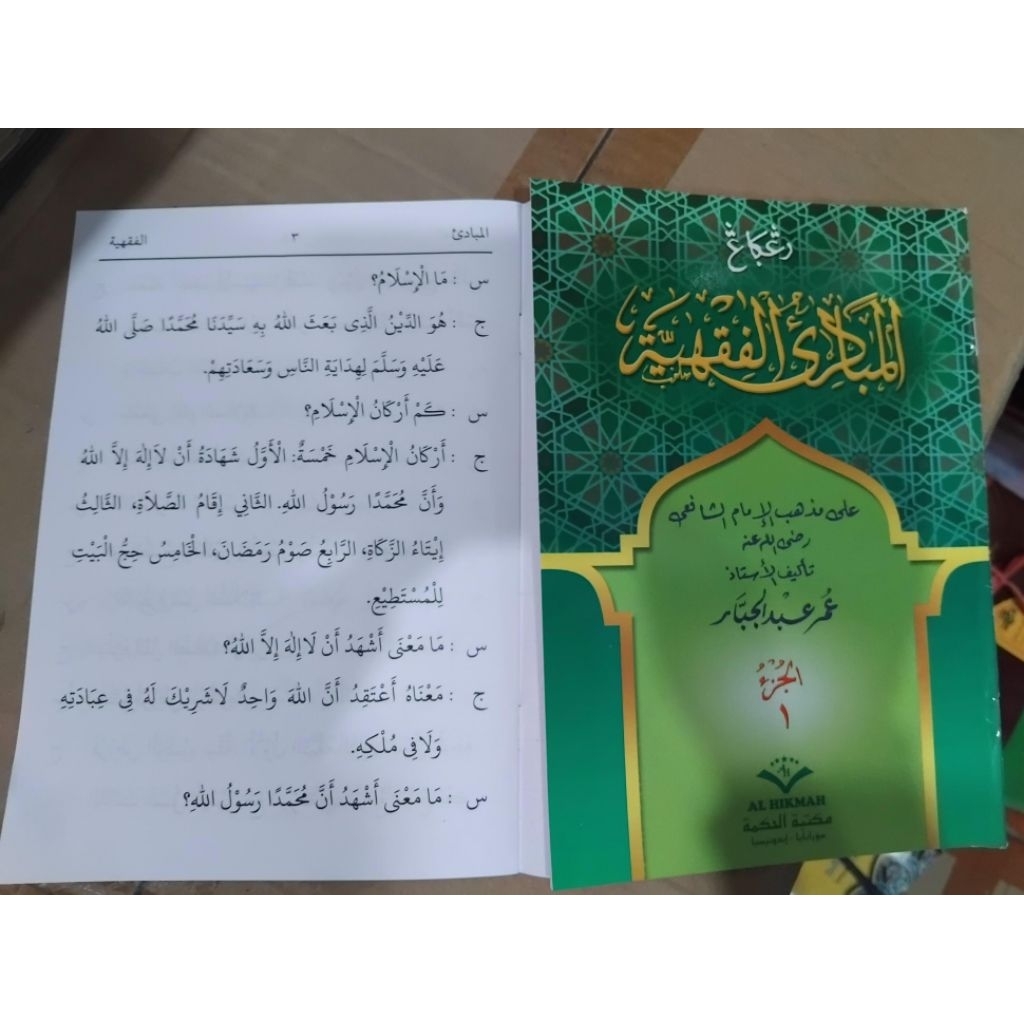 المبادئ ٣ الفقهية
س : مَا الْإِسْلَامُ؟
ج : هُوَ الدِّيْنُ الَّذِى بَعَثَ اللهُ بِهِ سَيِّدَنَا مُحَمَّدًا صَلَّى اللهُ
عَلَيْهِ وَسَلَّمَ لِهِدَايَةِ النَّاسِ وَسَعَادَتِهِمْ.
س : كَمْ أَرْكَانُ الْإِسْلَامِ؟
ج : أَرْكَانُ الْإِسْلَامِ خَمْسَةٌ: الْأَوَّلُ شَهَادَةُ أَنْ لَاإِلٰهَ إِلاَّ اللهُ
وَأَنَّ مُحَمَّدًا رَسُوْلُ اللهِ. الثَّانِي إِقَامُ الصَّلاَةِ، الثَّالِثُ
إِيْتَاءُ الزَّكَاةِ، الرَّابِعُ صَوْمُ رَمَضَانَ، الْخَامِسُ حِجُّ الْبَيْتِ
لِلْمُسْتَطِيْعِ.
س : مَا مَعْنَى أَشْهَدُ أَنْ لَاإِلٰهَ إِلاَّ اللهُ؟
ج : مَعْنَاهُ أَعْتَقِدُ أَنَّ اللهَ وَاحِدٌ لَاشَرِيْكَ لَهُ فِى عِبَادَتِهِ
وَلَافِى مُلْكِهِ.
س : مَا مَعْنَى أَشْهَدُ أَنَّ مُحَمَّدًا رَسُوْلُ اللهِ؟
رڠكاڠ
المَبَادِئُ الفِقْهِيَّة
على مذهب الإمام الشافعى
رضى الله عنه
تأليف الأستاذ
عُمر عبد الجبّار
الجُزءُ
١
AL HIKMAH
مكتبة الحكمة
سورابايا - إندونيسيا